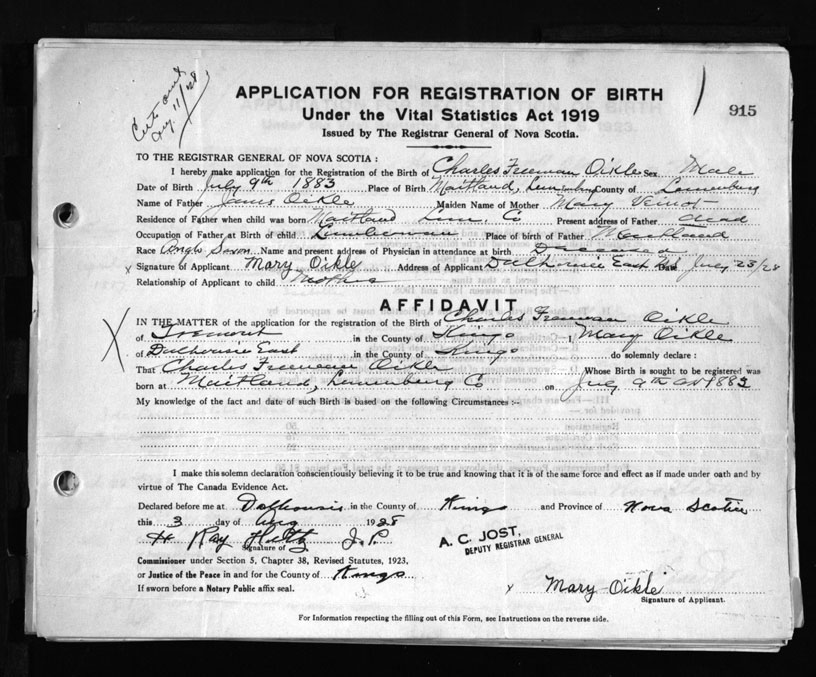 Aug. 11/28
APPLICATION FOR REGISTRATION OF BIRTH
915
Under the Vital Statistics Act 1919
Issued by The Registrar General of Nova Scotia.
TO THE REGISTRAR GENERAL OF NOVA SCOTIA :
I hereby make application for the Registration of the Birth of Charles Freeman Oikle Sex Male
Date of Birth July 9th 1883 Place of Birth Maitland, Lunenburg County of Lunenburg
Name of Father James Oikle Maiden Name of Mother Mary Veinot
Residence of Father when child was born Maitland Lun. Co Present address of Father dead
Occupation of Father at Birth of child Lumberman Place of birth of Father Maitland
Race Anglo Saxon Name and present address of Physician in attendance at birth Deceased
x Signature of Applicant Mary Oikle Address of Applicant Dalhousie East N.S. Date July 23/28
Relationship of Applicant to child Mother
AFFIDAVIT
IN THE MATTER of the application for the registration of the Birth of Charles Freeman Oikle
X of Tremont in the County of Kings I, Mary Oikle
of Dalhousie East in the County of Kings do solemnly declare :
That Charles Freeman Oikle Whose Birth is sought to be registered was
born at Maitland, Lunenburg Co on July 9th 1883
My knowledge of the fact and date of such Birth is based on the following Circumstances :-
I make this solemn declaration conscientiously believing it to be true and knowing that it is of the same force and effect as if made under oath and by
virtue of The Canada Evidence Act.
Declared before me at Dalhousie in the County of Kings and Province of Nova Scotia
this 3 day of Aug 1928
H Ray J.P.
Signature of
A. C. JOST,
DEPUTY REGISTRAR GENERAL
Commissioner under Section 5, Chapter 38, Revised Statutes, 1923,
or Justice of the Peace in and for the County of Kings
If sworn before a Notary Public affix seal.
x Mary Oikle
Signature of Applicant.
For Information respecting the filling out of this Form, see Instructions on the reverse side.